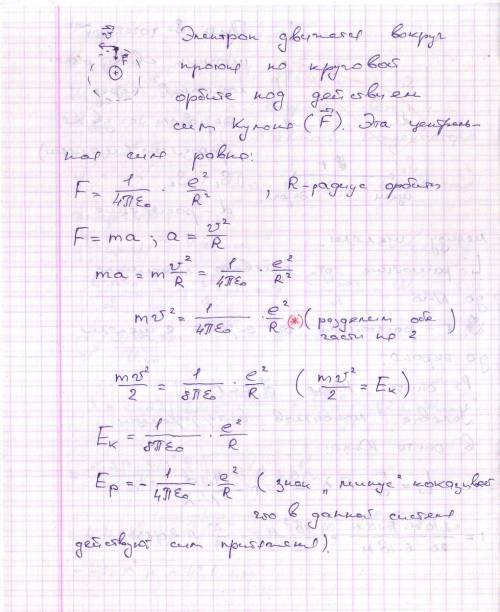 Электрон движется вокруг
протона по круговой
орбите под действием
сил Кулона (F⃗). Эта централь-
ная сила равна:
F = 1/4πε₀ · e²/R² , R-радиус орбиты
F = ma ; a = v²/R
ma = m v²/R = 1/4πε₀ · e²/R²
mv² = 1/4πε₀ · e²/R (*) (разделем обе
части на 2)
mv²/2 = 1/8πε₀ · e²/R ( mv²/2 = Eк )
Eк = 1/8πε₀ · e²/R
Eр = - 1/4πε₀ · e²/R ( знак „минус“ показывает
что в данной системе
действуют сил притяжения).